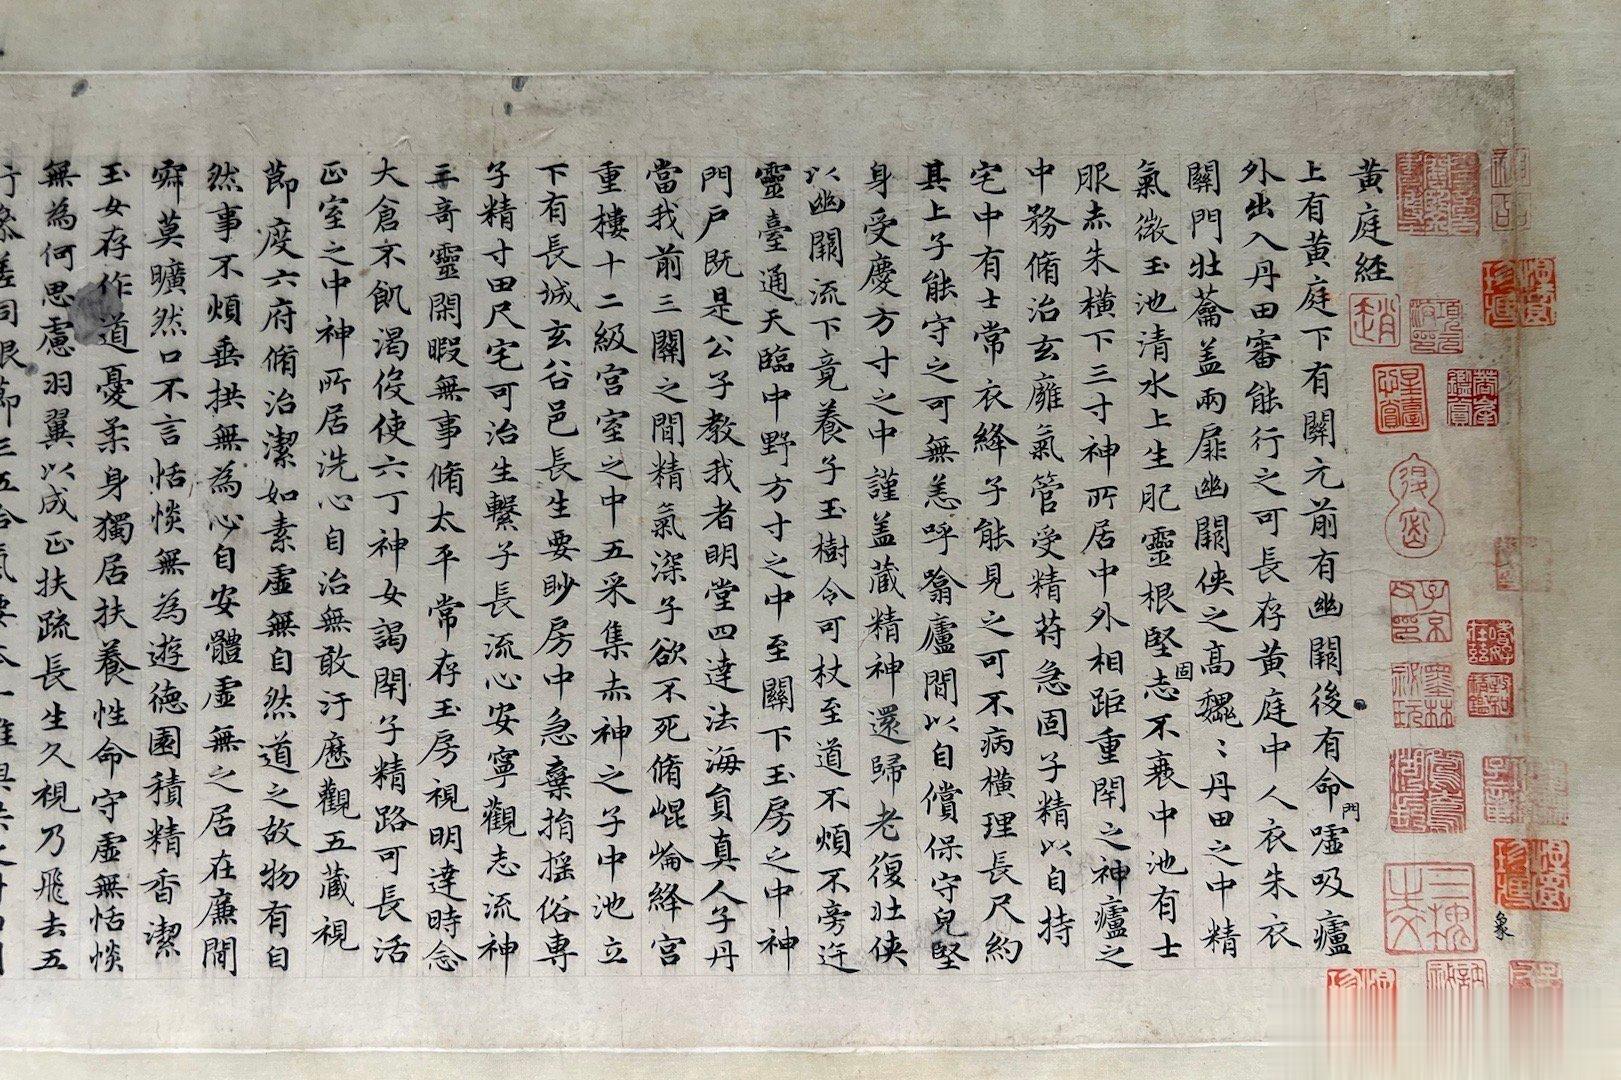 黃庭経
上有黃庭下有關元前有幽闕後有命門噓吸廬
外出入丹田審能行之可長存黃庭中人衣朱衣
關門壯蘥盖兩扉幽闕俠之高巍〻丹田之中精
氣微玉池清水上生肥靈根堅固志不衰中池有士
服赤朱橫下三寸神所居中外相距重閇之神廬之
中務脩治玄廱氣管受精苻急固子精以自持
宅中有士常衣絳子能見之可不病橫理長尺約
其上子能守之可無恙呼噏廬間以自償保守皃堅
身受慶方寸之中謹盖藏精神還歸老復壯俠
以幽闕流下竟養子玉樹令可杖至道不煩不旁迕
靈臺通天臨中野方寸之中至關下玉房之中神
門戶既是公子教我者明堂四達法海負真人子丹
當我前三關之間精氣深子欲不死脩崐崘絳宮
重樓十二級宮室之中五采集赤神之子中池立
下有長城玄谷邑長生要眇房中急棄捐揺俗專
子精寸田尺宅可治生繫子長流心安寧觀志流神
三奇靈閑暇無事脩太平常存玉房視明達時念
大倉不飢渴伇使六丁神女謁閇子精路可長活
正室之中神所居洗心自治無敢汙歷觀五藏視
節度六府脩治潔如素虛無自然道之故物有自
然事不煩垂拱無為心自安體虛無之居在廉間
寂莫曠然口不言恬惔無為遊德園積精香潔
玉女存作道憂柔身獨居扶養性命守虛無恬惔
無為何思慮羽翼以成正扶疏長生久視乃飛去五
象